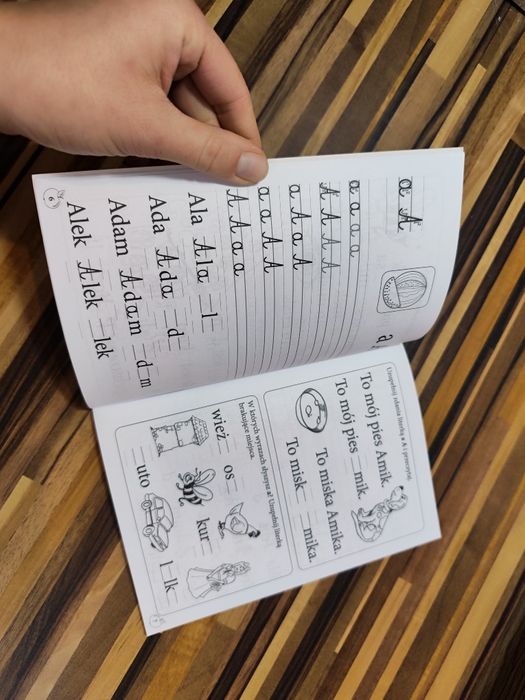 a A
a a a a
A A A A
a A a A
a a A A
A A a a
Ala Ala _l_
Ada Ada _d_
Adam Adam _d_m
Alek Alek _lek
6
Uzupełnij zdania literką a A i przeczytaj.
To mój pies Amik.
To mój pies _mik.
To miska Amika.
To misk_ _mika.
W których wyrazach słyszysz a? Uzupełnij literką
brakujące miejsca.
wież_ os_ kur_
_uto l_lk_
7